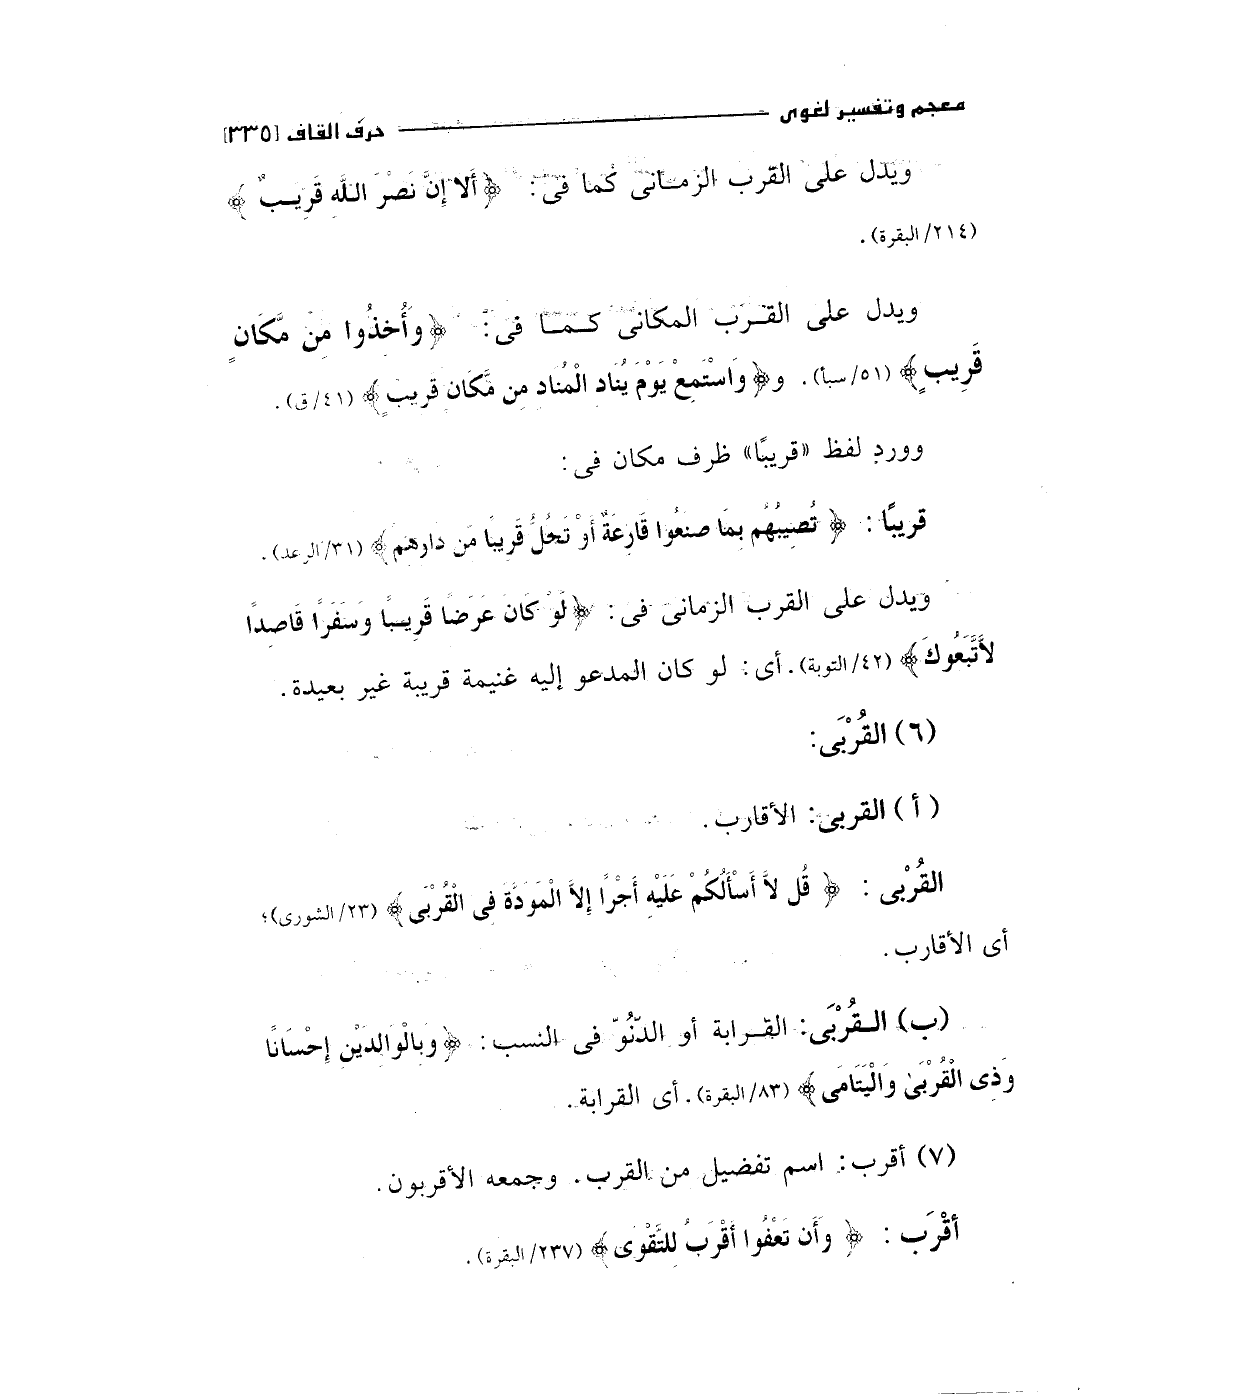 معجم وتفسير لغوى — حرف القاف [٣٣٥]
ويدل على القرب الزمانى كما فى: ﴿أَلا إِنَّ نَصْرَ اللَّهِ قَرِيبٌ﴾
(٢١٤/ البقرة).
ويدل على القرب المكانى كما فى: ﴿وَأُخِذُوا مِن مَّكَانٍ
قَرِيبٍ﴾ (٥١/ سبأ). و﴿وَاسْتَمِعْ يَوْمَ يُنَادِ الْمُنَادِ مِن مَّكَانٍ قَرِيبٍ﴾ (٤١/ ق).
وورد لفظ «قريبًا» ظرف مكان فى:
قريبًا: ﴿تُصِيبُهُم بِمَا صَنَعُوا قَارِعَةٌ أَوْ تَحُلُّ قَرِيبًا مِّن دَارِهِمْ﴾ (٣١/ الرعد).
ويدل على القرب الزمانى فى: ﴿لَوْ كَانَ عَرَضًا قَرِيبًا وَسَفَرًا قَاصِدًا
لاَّتَّبَعُوكَ﴾ (٤٢/ التوبة). أى: لو كان المدعو إليه غنيمة قريبة غير بعيدة.
(٦) القُرْبَى:
(أ) القربى: الأقارب.
القُرْبى: ﴿قُل لاَّ أَسْأَلُكُمْ عَلَيْهِ أَجْرًا إِلاَّ الْمَوَدَّةَ فِى الْقُرْبَى﴾ (٢٣/ الشورى)؛
أى الأقارب.
(ب) القُرْبَى: القرابة أو الدّنُوّ فى النسب: ﴿وَبِالْوَالِدَيْنِ إِحْسَانًا
وَذِى الْقُرْبَىٰ وَالْيَتَامَى﴾ (٨٣/ البقرة). أى القرابة.
(٧) أقرب: اسم تفضيل من القرب. وجمعه الأقربون.
أقْرَب: ﴿وَأَن تَعْفُوا أَقْرَبُ لِلتَّقْوَى﴾ (٢٣٧/ البقرة).